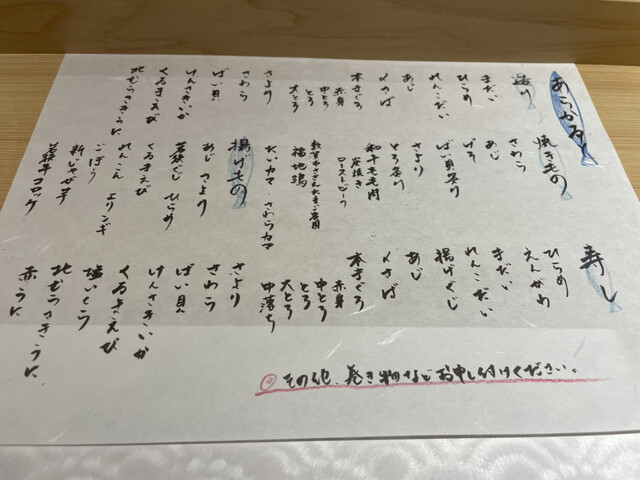 あらかると
造り
まだい
ひらめ
れんこだい
あじ
〆さば
本まぐろ
赤身
中とろ
とろ
大とろ
さより
さわら
ばい貝
けんさきいか
くるまえび
北むらさきうに
焼きもの
さわら
げそ
ばい貝炙り
さより
とろ炙り
和牛モモ肉
炭焼き
ローストビーフ
敦賀市ささえたまご使用
福地鶏
たいカマ さわらカマ
揚げもの
あじ さより
若狭ぐじ ひらめ
くるまえび
れんこん エリンギ
ごぼう
新じゃが芋
若狭牛コロッケ
寿し
ひらめ
えんがわ
まだい
れんこだい
揚げぐじ
あじ
〆さば
本まぐろ
赤身
中とろ
とろ
大とろ
中落ち
さより
さわら
ばい貝
けんさきいか
くるまえび
塩いくら
北むらさきうに
赤うに
◎その他、巻き物などお申し付けください。